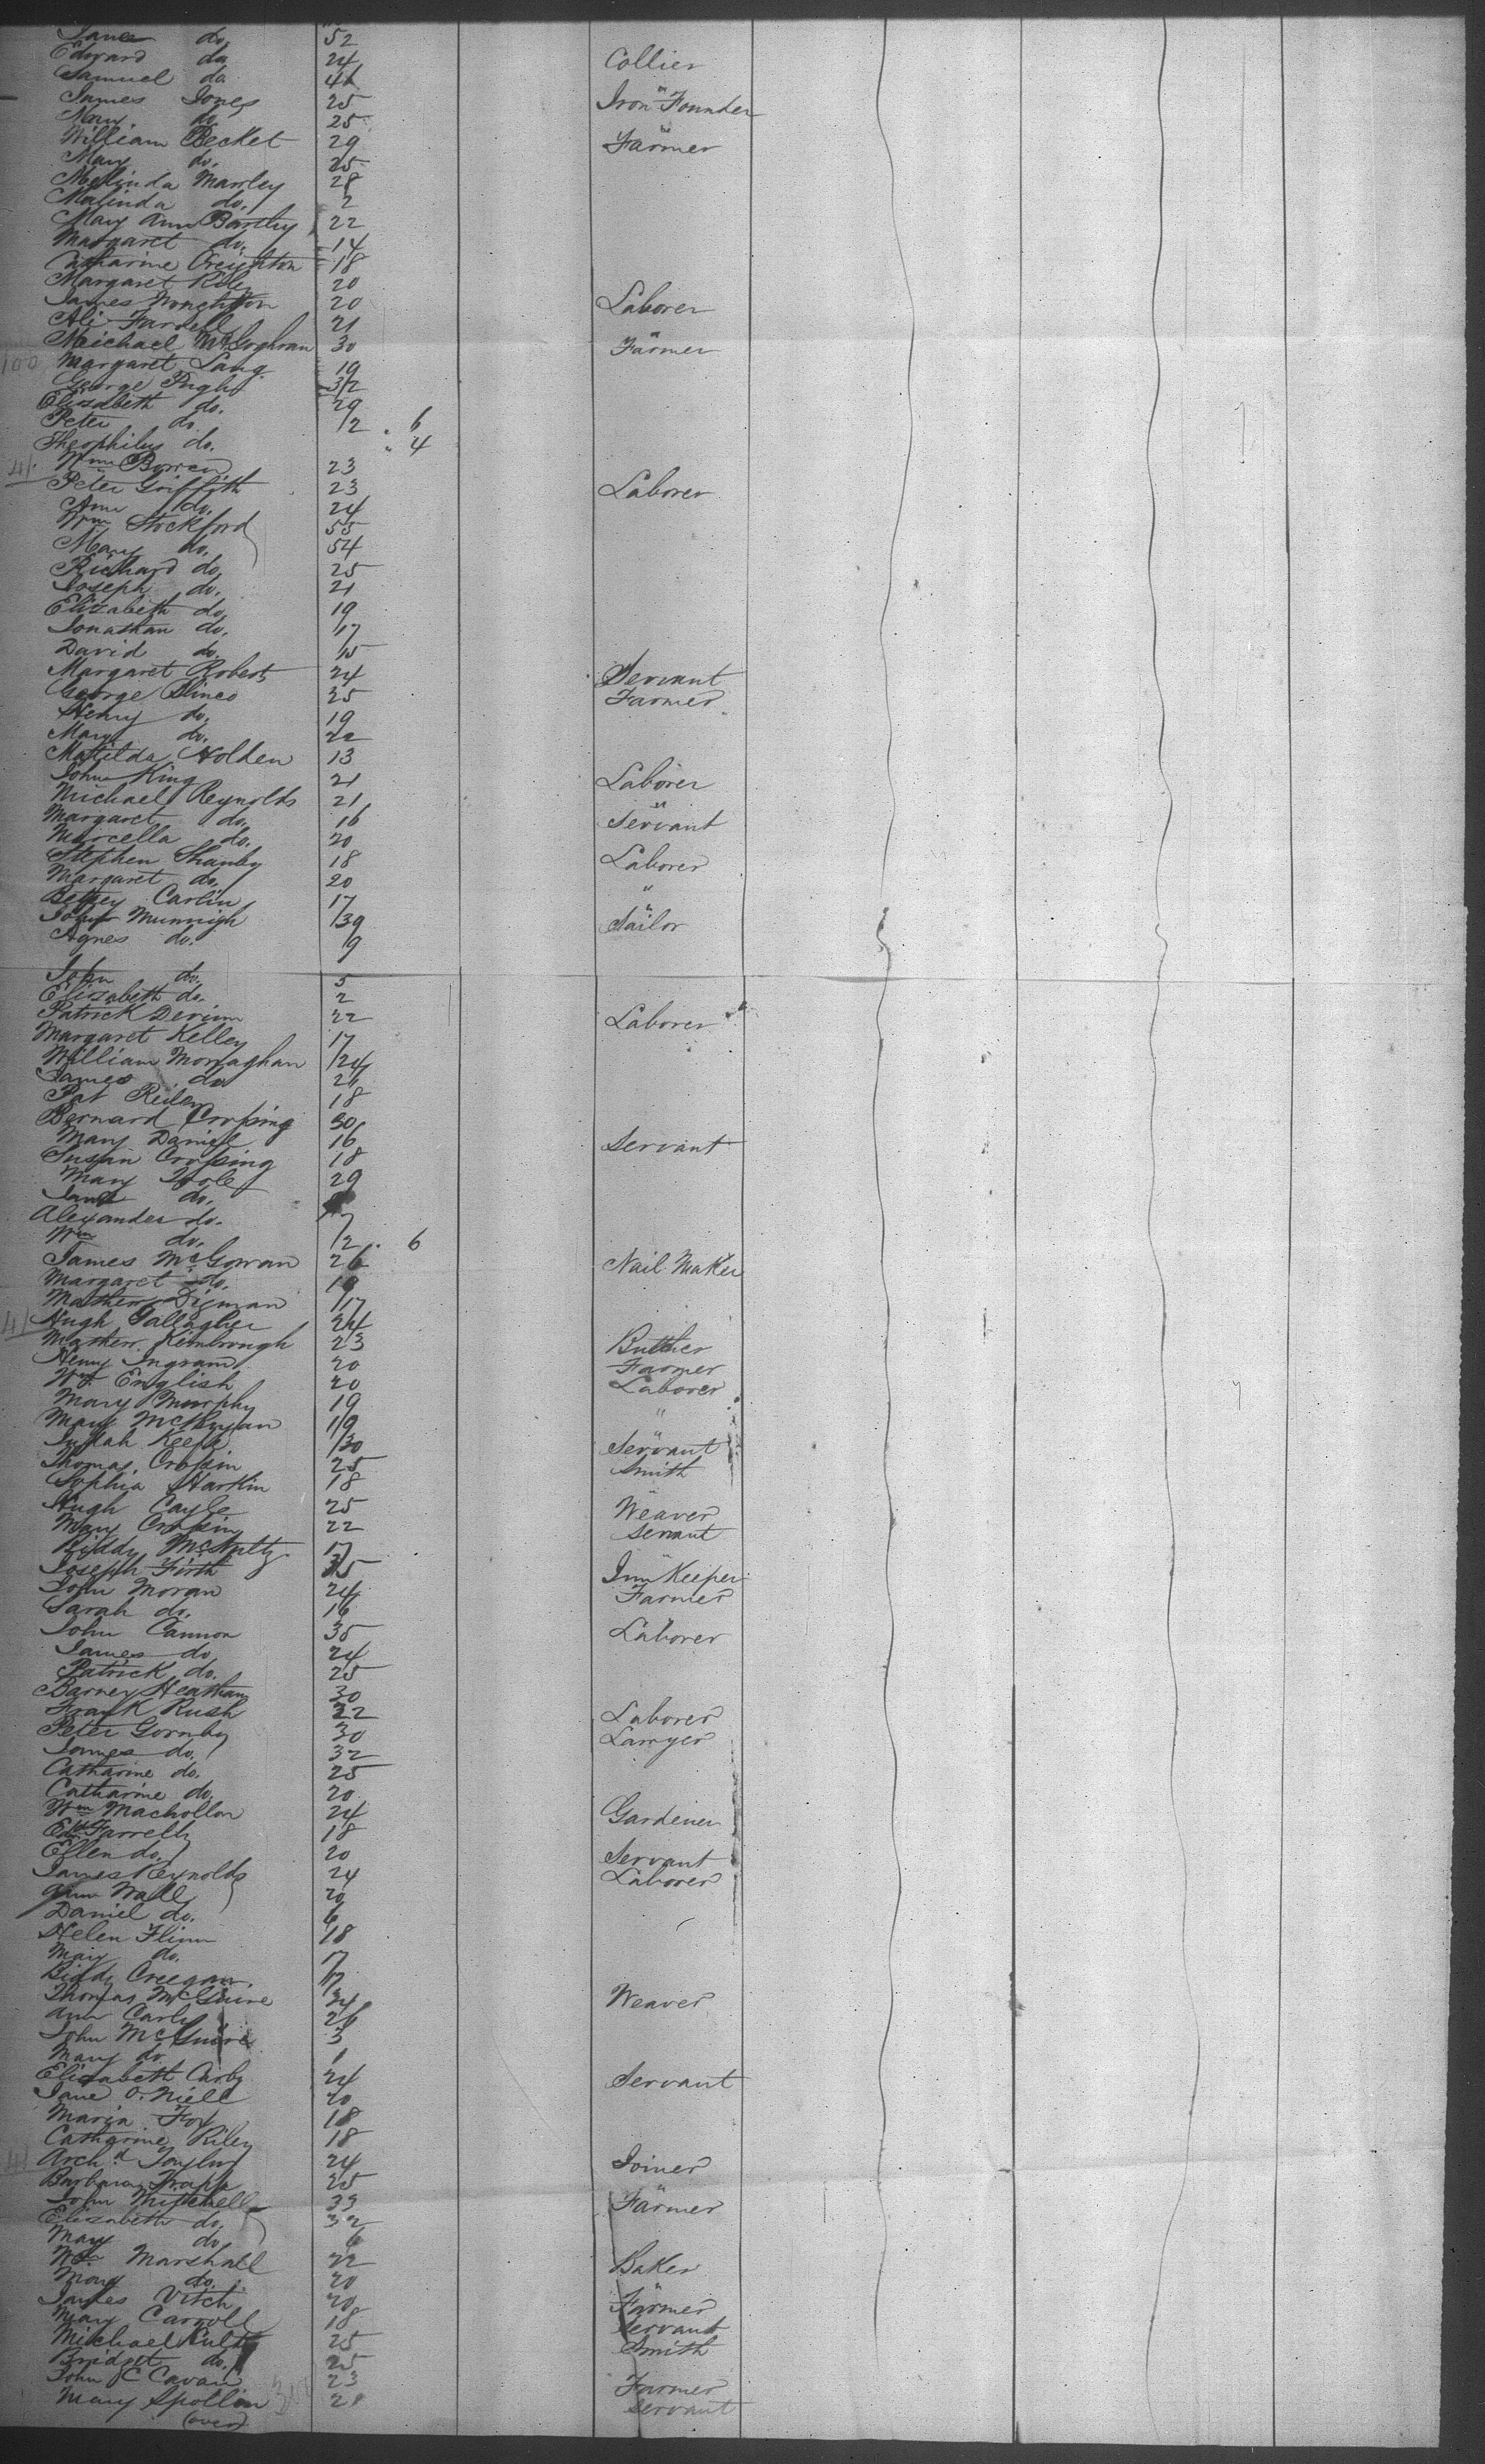 Jane do. 52
Edward do 24 Collier
Samuel do 46 "
James Jones 25 Iron Founder
Mary do. 25 "
William Becket 29 Farmer
Mary do. 25
Melinda Manley 28
Malinda do. 2
Mary Ann Bartly 22
Margaret do. 14
Catharine Creighton 18
Margaret Riley 20
James 20 Laborer
Ali Farrell 21 "
Michael 30 Farmer
100 Margaret Lang 19
George Pugh 32
Elizabeth do. 29
Peter do. 1/2 . 6
Theophilus do. " 4
41. Wm Bowen 23
Peter Griffith 23 Laborer
Ann do. 24
Wm Stockford 55
Mary do. 54
Richard do. 25
Joseph do. 21
Elizabeth do. 19
Jonathan do. 17
David do. 15
Margaret Roberts 24 Servant
George 25 Farmer
Henry do. 19
Mary do. 22
Matilda Holden 13
John King 21 Laborer
Michael Reynolds 21 "
Margaret do. 16 Servant
Marcella do. 20
Stephen Shanly 18 Laborer
Margaret do. 20 "
Betsey Carlin 17 "
John 39 Sailor
Agnes do. 9
John do. 5
Elizabeth do. 2
Patrick 22 Laborer
Margaret Kelley 17
William Monaghan 24
James do
Pat Riley 18
Bernard Crossing 30
Mary Daniel 16 Servant
Susan Crossing 18
Mary Toole 29
Jane do.
Alexander do. 7
Wm do. 1/2 . 6
James McGowan 26 Nail Maker
Margaret do.
Mathew Digman 17
41 Hugh Gallagher 24
Mathew Kimbrough 23 Butcher
Henry Ingram 20 Farmer
Wm English 20 Laborer
Mary Murphy 19 "
Mary 19 "
Judah Keefe 30 Servant
Thomas Crossin 25 Smith
Sophia Harkin 18
Hugh Cayle 25 Weaver
Mary Crossin 22 Servant
Biddy McNulty 17
Joseph Firth 35 Inn Keeper
John Moran 24 Farmer
Sarah do. 16
John Cannon 35 Laborer
James do 24
Patrick do. 25
Barney 30
Frank Rush 22 Laborer
Peter Gormly 30 Lawyer
James do. 32
Catharine do. 25
Catharine do. 20
Wm 24 Gardener
Farrelly 18
Ellen do. 20 Servant
James Reynolds 24 Laborer
Ann Wall 20
Daniel do. 6
Helen Flinn 18
Mary do.
Biddy Creegan 17
Thomas McGuire 24 Weaver
Ann 26
John McGuire 3
Mary do 1
Elizabeth 24 Servant
Jane O. Niell 20
Maria Fox 18
Catharine Riley 18
41 Arch.d Taylor 24 Joiner
Barbara 25 "
John Mitchell 33 Farmer
Elizabeth do. 32
Mary do. 6
Wm Marshall 22 Baker
Mary do. 20
James Vitch 20 Farmer
Mary Carroll 18 Servant
Michael 25 Smith
Bridget do. 25
John C Cavan 23 Farmer
Mary Spollin 21 Servant
(over)